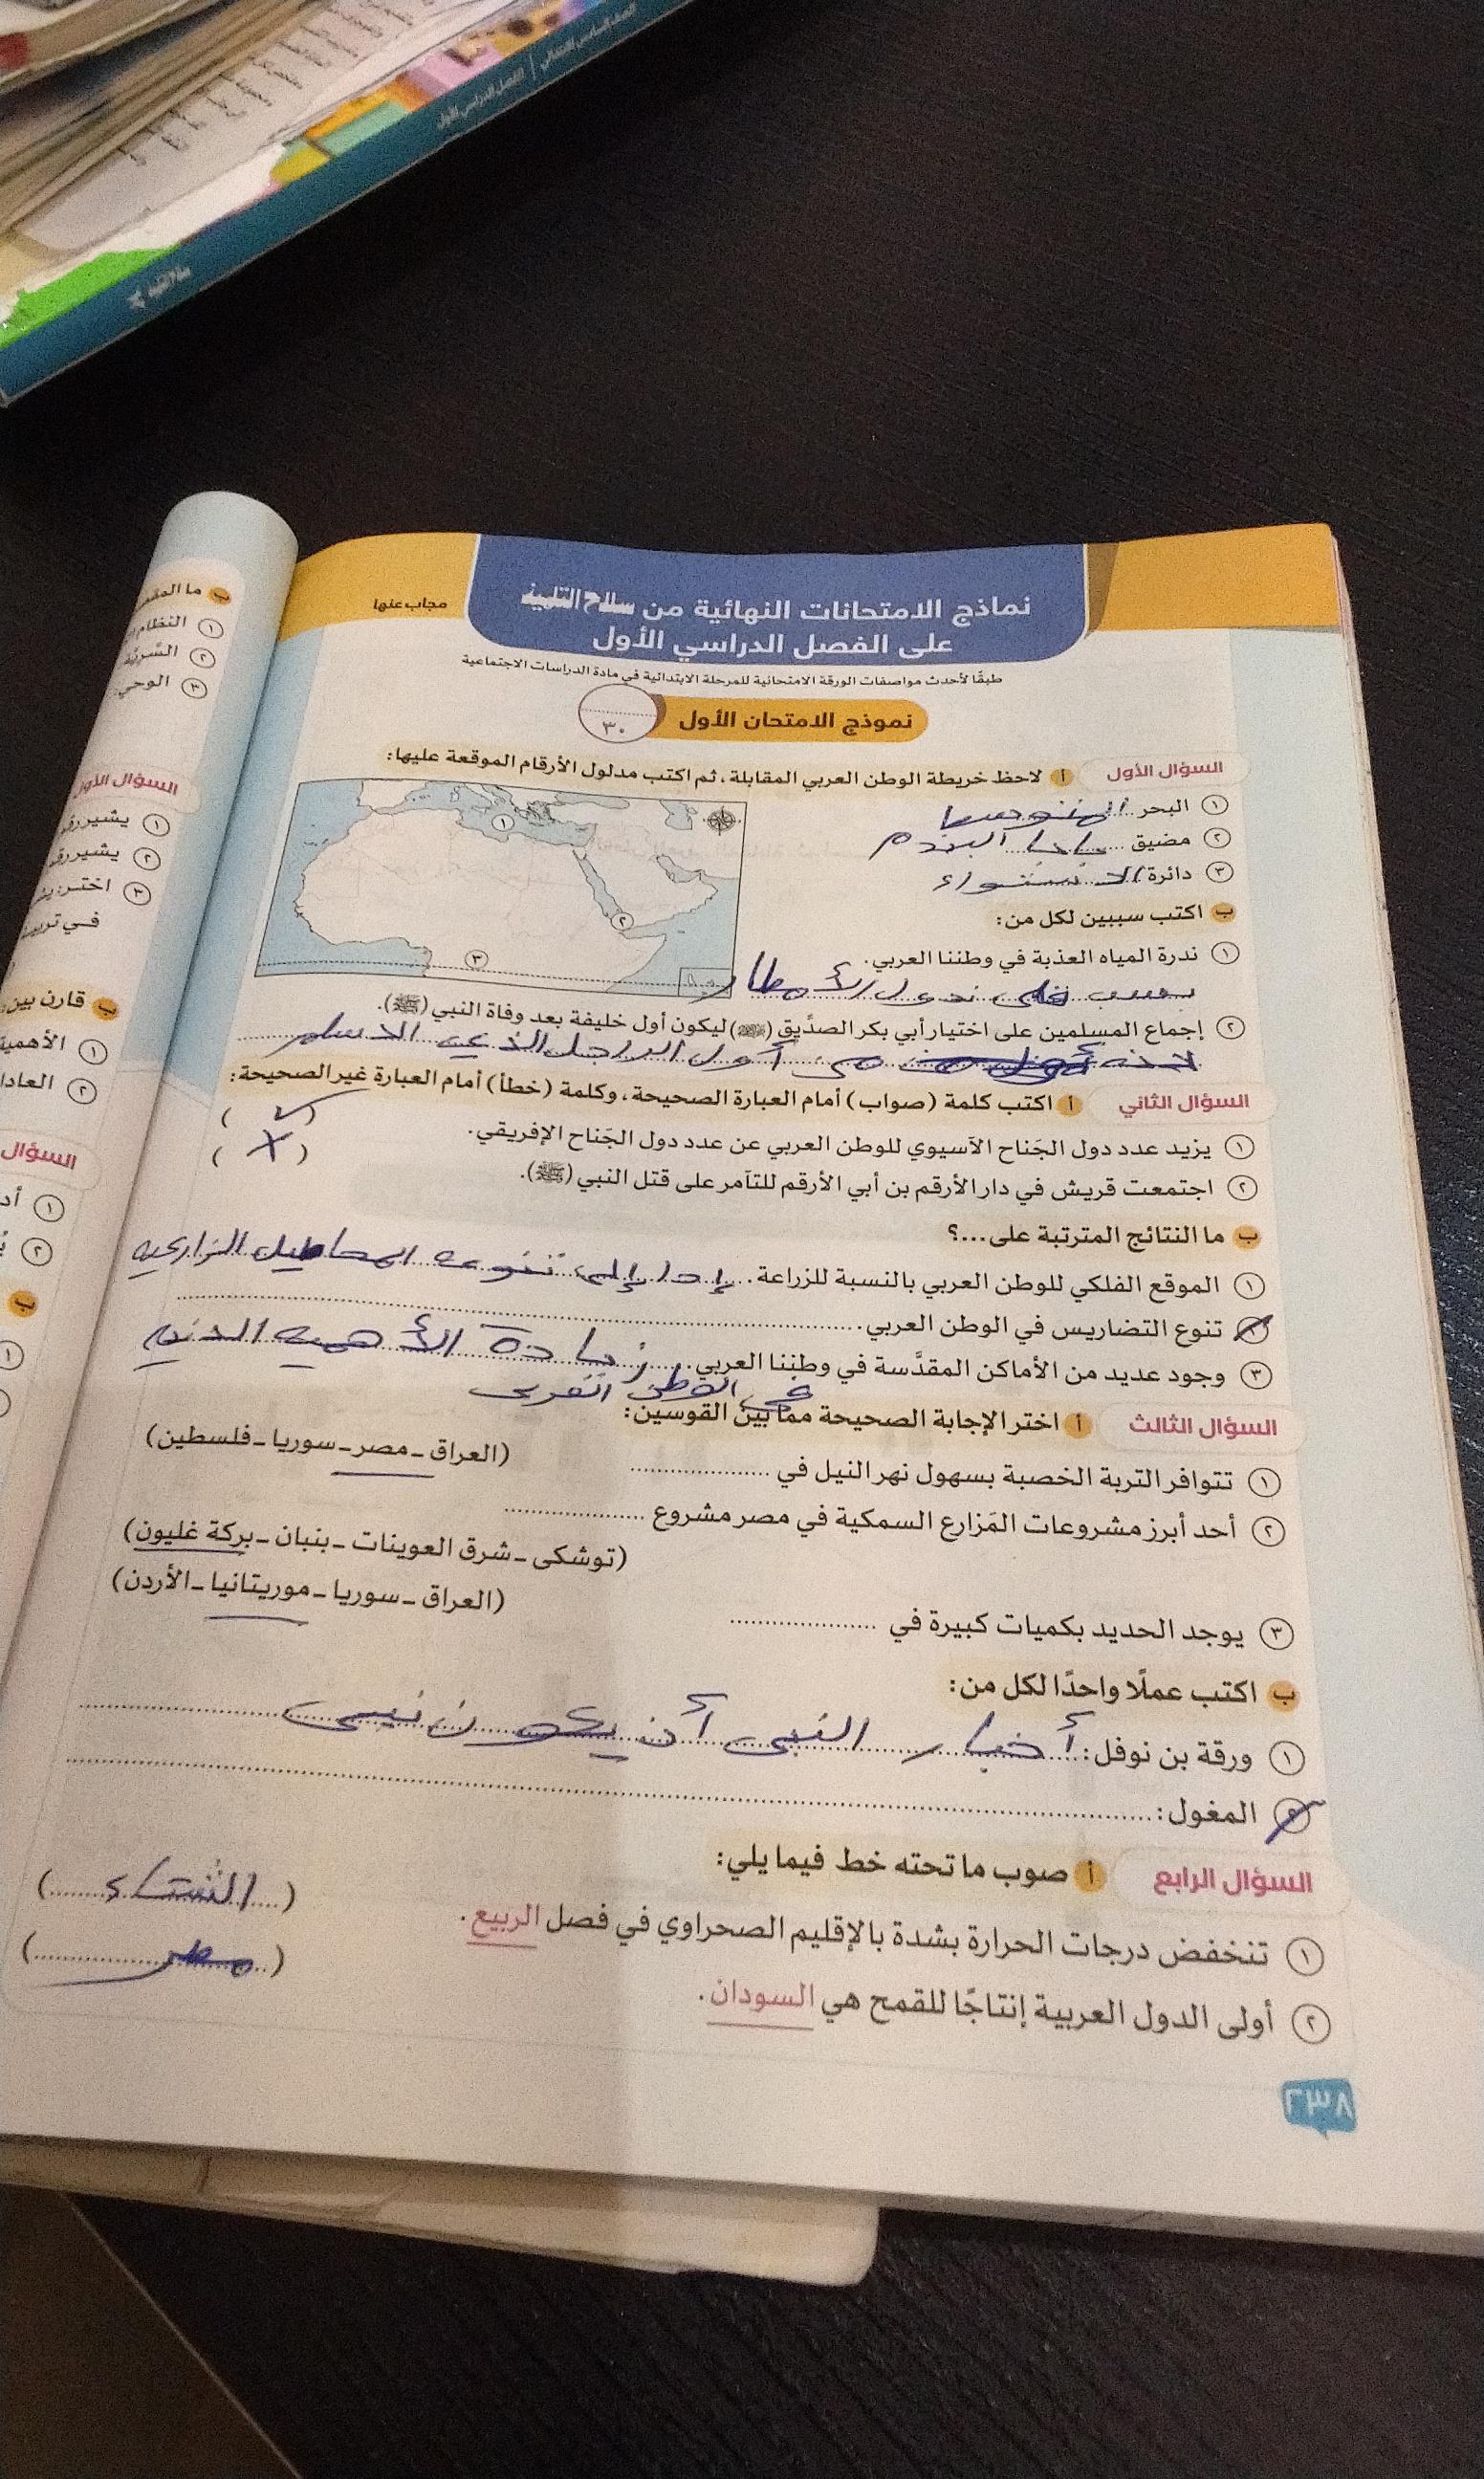 الصف السادس الابتدائي | الفصل الدراسي الأول
نماذج الامتحانات النهائية من سلاح التلميذ
على الفصل الدراسي الأول
مجاب عنها
طبقًا لأحدث مواصفات الورقة الامتحانية للمرحلة الابتدائية في مادة الدراسات الاجتماعية
نموذج الامتحان الأول
٣٠
السؤال الأول أ لاحظ خريطة الوطن العربي المقابلة، ثم اكتب مدلول الأرقام الموقعة عليها:
١ البحر المتوسط
٢ مضيق باب المندم
٣ دائرة الاستواء
١
٢
٣
ب اكتب سببين لكل من:
١ ندرة المياه العذبة في وطننا العربي.
بسبب الأمطار
٢ إجماع المسلمين على اختيار أبي بكر الصدِّيق (رضي الله عنه) ليكون أول خليفة بعد وفاة النبي (ﷺ).
لانه من أول الراجل الذي الاسلم
السؤال الثاني أ اكتب كلمة (صواب) أمام العبارة الصحيحة، وكلمة (خطأ) أمام العبارة غير الصحيحة:
١ يزيد عدد دول الجَناح الآسيوي للوطن العربي عن عدد دول الجَناح الإفريقي. (✓)
٢ اجتمعت قريش في دار الأرقم بن أبي الأرقم للتآمر على قتل النبي (ﷺ). (X)
ب ما النتائج المترتبة على...؟
١ الموقع الفلكي للوطن العربي بالنسبة للزراعة. إدا إلى تنوعه المحاطيل الزراعيه
٢ تنوع التضاريس في الوطن العربي.
٣ وجود عديد من الأماكن المقدَّسة في وطننا العربي. زيادة الأهميه الدنيه
في الوطن العربى
السؤال الثالث أ اختر الإجابة الصحيحة مما بين القوسين:
١ تتوافر التربة الخصبة بسهول نهر النيل في (العراق - مصر - سوريا - فلسطين)
٢ أحد أبرز مشروعات المَزارع السمكية في مصر مشروع
(توشكى - شرق العوينات - بنبان - بركة غليون)
٣ يوجد الحديد بكميات كبيرة في (العراق - سوريا - موريتانيا - الأردن)
ب اكتب عملًا واحدًا لكل من:
١ ورقة بن نوفل: أخبار النبى أن يكون نبيى
٢ المغول:
السؤال الرابع أ صوب ما تحته خط فيما يلي:
١ تنخفض درجات الحرارة بشدة بالإقليم الصحراوي في فصل الربيع. (الشتاء)
٢ أولى الدول العربية إنتاجًا للقمح هي السودان. (مصر)
٢٣٨
ب
١ النظام
٢ السريّة
٣ الوحي
السؤال الأول
١ يشير
٢ يشير
٣
ب قارن بين
١ الأهمية
٢
السؤال
١
٢
ب
١